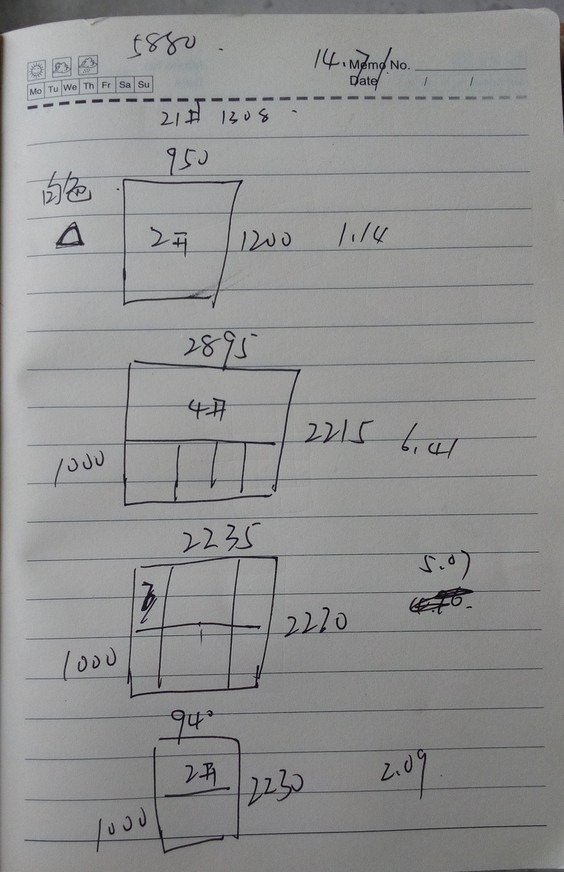 5880.
14.71
Memo No.
Date / /
Mo Tu We Th Fr Sa Su
21# 1308
950
白色
2开 1200 1.14
2895
4开
2215 6.41
1000
2235
5.07
2270
1000
940
2开
2230 2.09
1000